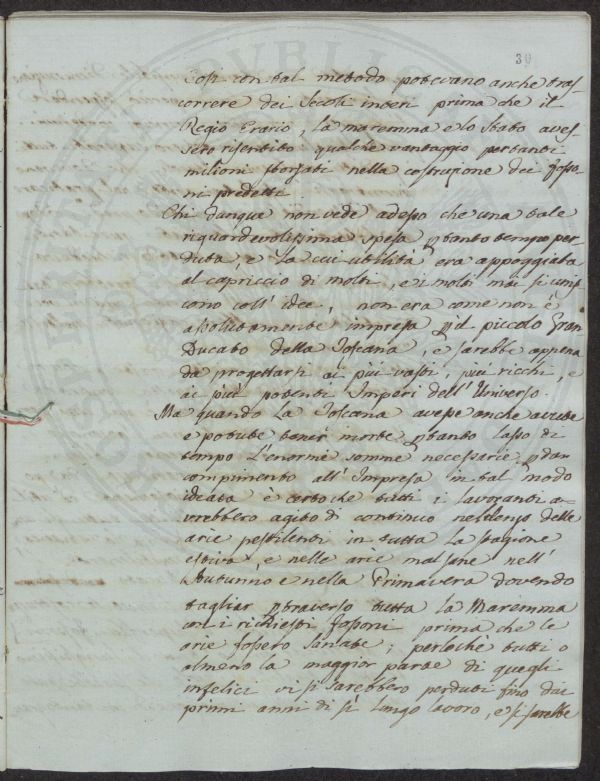 39
Così con tal metodo potevano anche tras-
correre dei Secoli interi prima che il
Regio Erario, la maremma e lo Stato aves-
sero risentito qualche vantaggio per tanti
milioni sborsati nella costruzione dei fosso-
ni predetti.
Chi dunque non vede adesso che una tale
riguardevolissima spesa ꝑ tanto tempo per-
duta, e la cui utilità era appoggiata
al capriccio di molti, e i molti mai si unis-
cono coll' idea, non era come non è
assolutamente impresa ꝑ il piccolo Gran
Ducato della Toscana, e sarebbe appena
da progettarsi ai più vasti, più ricchi, e
ai più potenti Imperi dell' Universo.
Ma quando la Toscana avesse anche avute
e potute tener morte ꝑ tanto lasso di
tempo l'enorme somme necessarie ꝑ dar
compimento all' Impresa in tal modo
ideata è certo che tutti i lavoranti a-
verebbero agito di continuo nel denso delle
arie pestilenti in tutta la stagione
estiva, e nelle arie malsane nell'
Autunno e nella Primavera dovendo
tagliar ꝑ traverso tutta la Maremma
con i richiesti fossoni prima che le
arie fossero sanate; perloché tutti o
almeno la maggior parte di quegli
infelici vi si sarebbero perduti fino dai
primi anni di sì lungo lavoro, e si sarebbe